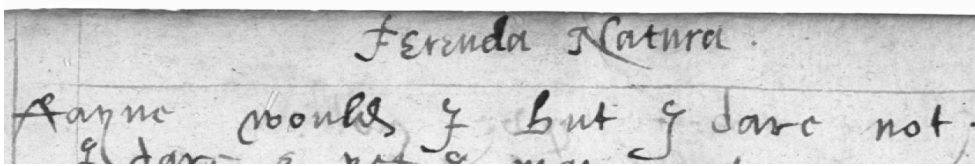 Ferenda Natura.
ffayne would I but I dare not.
I dare & yet I may not